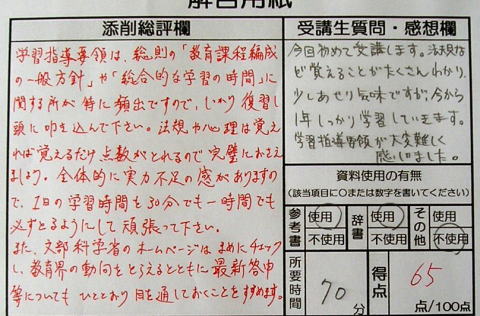 解答用紙
添削総評欄
学習指導要領は、総則の「教育課程編成
の一般方針」や「総合的な学習の時間」に
関する所が特に頻出ですので、しっかり復習し
頭に叩き込んで下さい。法規や心理は覚え
れば覚えるだけ点数がとれるので完璧におさえ
ましょう。全体的に実力不足の感がありますの
で、1日の学習時間を30分でも一時間でも
必ずとるようにして頑張って下さい。
また、文部科学省のホームページはまめにチェック
し、教育界の動向をとらえるとともに最新答申
等についてもひととおり目を通しておくことをすすめます。
受講生質問・感想欄
今回初めて受講します。法規な
ど覚えることがたくさんわかり、
少しあせり気味ですが、今から
1年しっかり学習していきます。
学習指導要領が大変難しく
感じました。
資料使用の有無
(該当項目に○または数字を書いてください)
参考書 使用 不使用
辞書 使用 不使用
その他 使用 不使用
所要時間 70分
得点 65点/100点